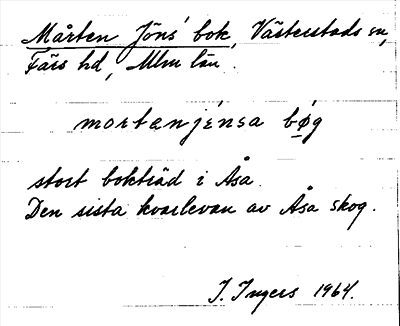 Mårten Jöns' bok, Västerstads sn,
Färs hd, Mlm län.
mortənjénsa bø̱g
stort bokträd i Åsa.
Den sista kvarlevan av Åsa skog.
I. Ingers 1964.